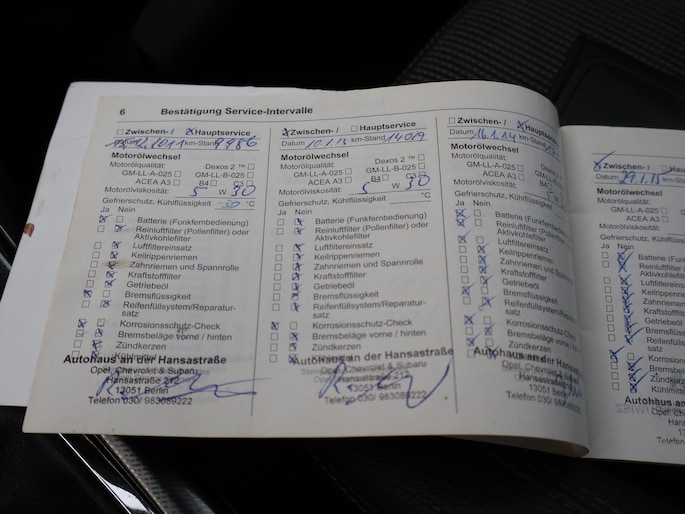 6 Bestätigung Service-Intervalle
Zwischen- / Hauptservice
Datum 2011 km-Stand 9986
Motorölwechsel
Motorölqualität: Dexos 2 ™
GM-LL-A-025 GM-LL-B-025
ACEA A3 B4 C3
Motorölviskosität: 5 W 30
Gefrierschutz, Kühlflüssigkeit -30 °C
Ja Nein
Batterie (Funkfernbedienung)
Reinluftfilter (Pollenfilter) oder
Aktivkohlefilter
Luftfiltereinsatz
Keilrippenriemen
Zahnriemen und Spannrolle
Kraftstofffilter
Getriebeöl
Bremsflüssigkeit
Reifenfüllsystem/Reparatur-
satz
Korrosionsschutz-Check
Bremsbeläge vorne / hinten
Zündkerzen
Kühlmittel
Autohaus an der Hansastraße
Opel, Chevrolet & Subaru
Hansastraße 212
13051 Berlin
Telefon 030/ 983089222
Zwischen- / Hauptservice
Datum 10.1.13 km-Stand 14019
Motorölwechsel
Motorölqualität: Dexos 2 ™
GM-LL-A-025 GM-LL-B-025
ACEA A3 B4 C3
Motorölviskosität: 5 W 30
Gefrierschutz, Kühlflüssigkeit °C
Ja Nein
Batterie (Funkfernbedienung)
Reinluftfilter (Pollenfilter) oder
Aktivkohlefilter
Luftfiltereinsatz
Keilrippenriemen
Zahnriemen und Spannrolle
Kraftstofffilter
Getriebeöl
Bremsflüssigkeit
Reifenfüllsystem/Reparatur-
satz
Korrosionsschutz-Check
Bremsbeläge vorne / hinten
Zündkerzen
Autohaus an der Hansastraße
Opel, Chevrolet & Subaru
Hansastraße 212
13051 Berlin
Telefon 030/ 983089222
Zwischen- / Hauptservice
Datum 16.1.14 km-Stand
Motorölwechsel
Motorölqualität:
GM-LL-A-025
ACEA A3
Motorölviskosität:
Gefrierschutz, Kühlflüssigkeit
Ja Nein
Batterie (Funkfernbedienung)
Reinluftfilter (Pollenfilter) oder
Aktivkohlefilter
Luftfiltereinsatz
Keilrippenriemen
Zahnriemen und Spannrolle
Kraftstofffilter
Getriebeöl
Bremsflüssigkeit
Reifenfüllsystem/Reparatur-
satz
Korrosionsschutz-Check
Bremsbeläge vorne / hinten
Zündkerzen
Autohaus an der Hansastraße
Opel, Chevrolet & Subaru
Hansastraße 212
13051 Berlin
Telefon 030/ 983089222
Zwischen- /
Datum 29.1.15
Motorölwechsel
Motorölqualität:
GM-LL-A-025
ACEA A3
Motorölviskosität:
Gefrierschutz, Kühlflüssigkeit
Ja Nein
Batterie
Reinluftfilter
Aktivkohlefilter
Luftfiltereinsatz
Keilrippenriemen
Zahnriemen
Kraftstofffilter
Getriebeöl
Bremsflüssigkeit
Reifenfüllsystem
satz
Korrosionsschutz
Bremsbeläge
Zündkerzen
Kühlmittel
Autohaus an
Opel, Chevrolet
Telefon 030/